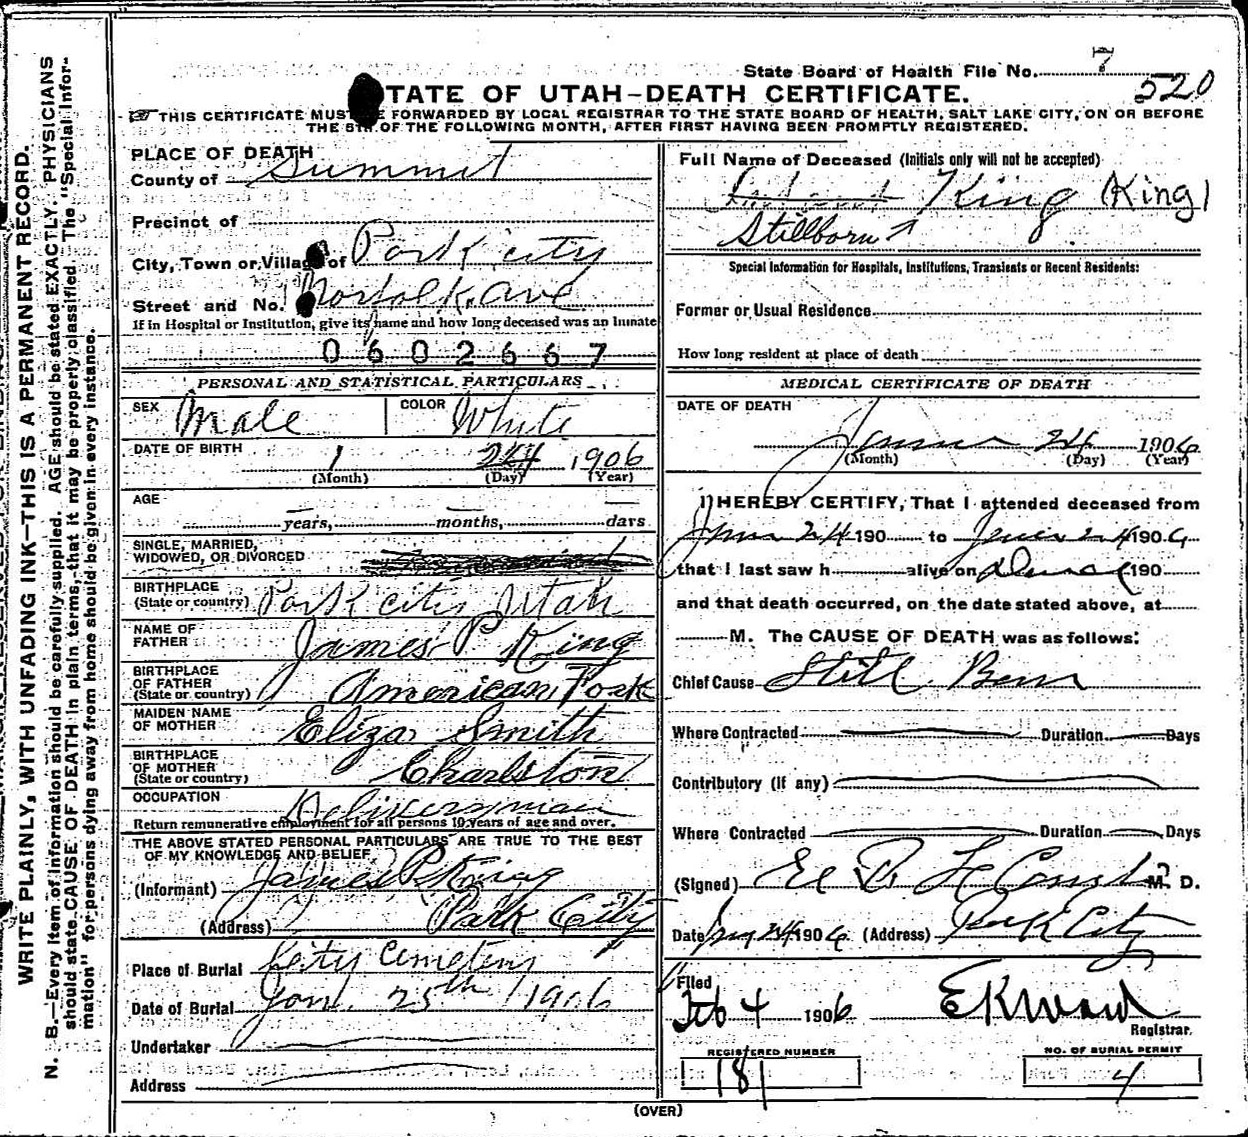 WRITE PLAINLY, WITH UNFADING INK—THIS IS A PERMANENT RECORD.
N. B.—Every item of information should be carefully supplied. AGE should be stated EXACTLY. PHYSICIANS
should state CAUSE OF DEATH in plain terms, that it may be properly classified. The "Special Infor-
mation" for persons dying away from home should be given in every instance.
State Board of Health File No. 7
520
STATE OF UTAH—DEATH CERTIFICATE.
THIS CERTIFICATE MUST BE FORWARDED BY LOCAL REGISTRAR TO THE STATE BOARD OF HEALTH, SALT LAKE CITY, ON OR BEFORE
THE 5TH OF THE FOLLOWING MONTH, AFTER FIRST HAVING BEEN PROMPTLY REGISTERED.
PLACE OF DEATH
County of Summit
Precinct of
City, Town or Village of Park City
Street and No. Norfolk Ave
If in Hospital or Institution, give its name and how long deceased was an inmate
0602667
PERSONAL AND STATISTICAL PARTICULARS
SEX Male COLOR White
DATE OF BIRTH 1 24 1906
(Month) (Day) (Year)
AGE
years, months, days
SINGLE, MARRIED,
WIDOWED, OR DIVORCED
BIRTHPLACE
(State or country) Park City Utah
NAME OF
FATHER James P King
BIRTHPLACE
OF FATHER
(State or country) American Fork
MAIDEN NAME
OF MOTHER Eliza Smith
BIRTHPLACE
OF MOTHER
(State or country) Charlston
OCCUPATION Deliveryman
Return remunerative employment for all persons 10 years of age and over.
THE ABOVE STATED PERSONAL PARTICULARS ARE TRUE TO THE BEST
OF MY KNOWLEDGE AND BELIEF
(Informant) James P. King
(Address) Park City
Place of Burial City Cemetery
Date of Burial Jan. 25th 1906
Undertaker
Address
Full Name of Deceased (Initials only will not be accepted)
King (King)
Stillborn
Special Information for Hospitals, Institutions, Transients or Recent Residents:
Former or Usual Residence
How long resident at place of death
MEDICAL CERTIFICATE OF DEATH
DATE OF DEATH
24 1906
(Month) (Day) (Year)
I HEREBY CERTIFY, That I attended deceased from
24 190 to 24 1906
that I last saw h alive on 190
and that death occurred, on the date stated above, at
M. The CAUSE OF DEATH was as follows:
Chief Cause Still Born
Where Contracted Duration Days
Contributory (if any)
Where Contracted Duration Days
(Signed) M. D.
Date 24 1906 (Address) Park City
Filed
Feb 4 1906 E K Ward
Registrar.
REGISTERED NUMBER NO. OF BURIAL PERMIT
181 4
(OVER)